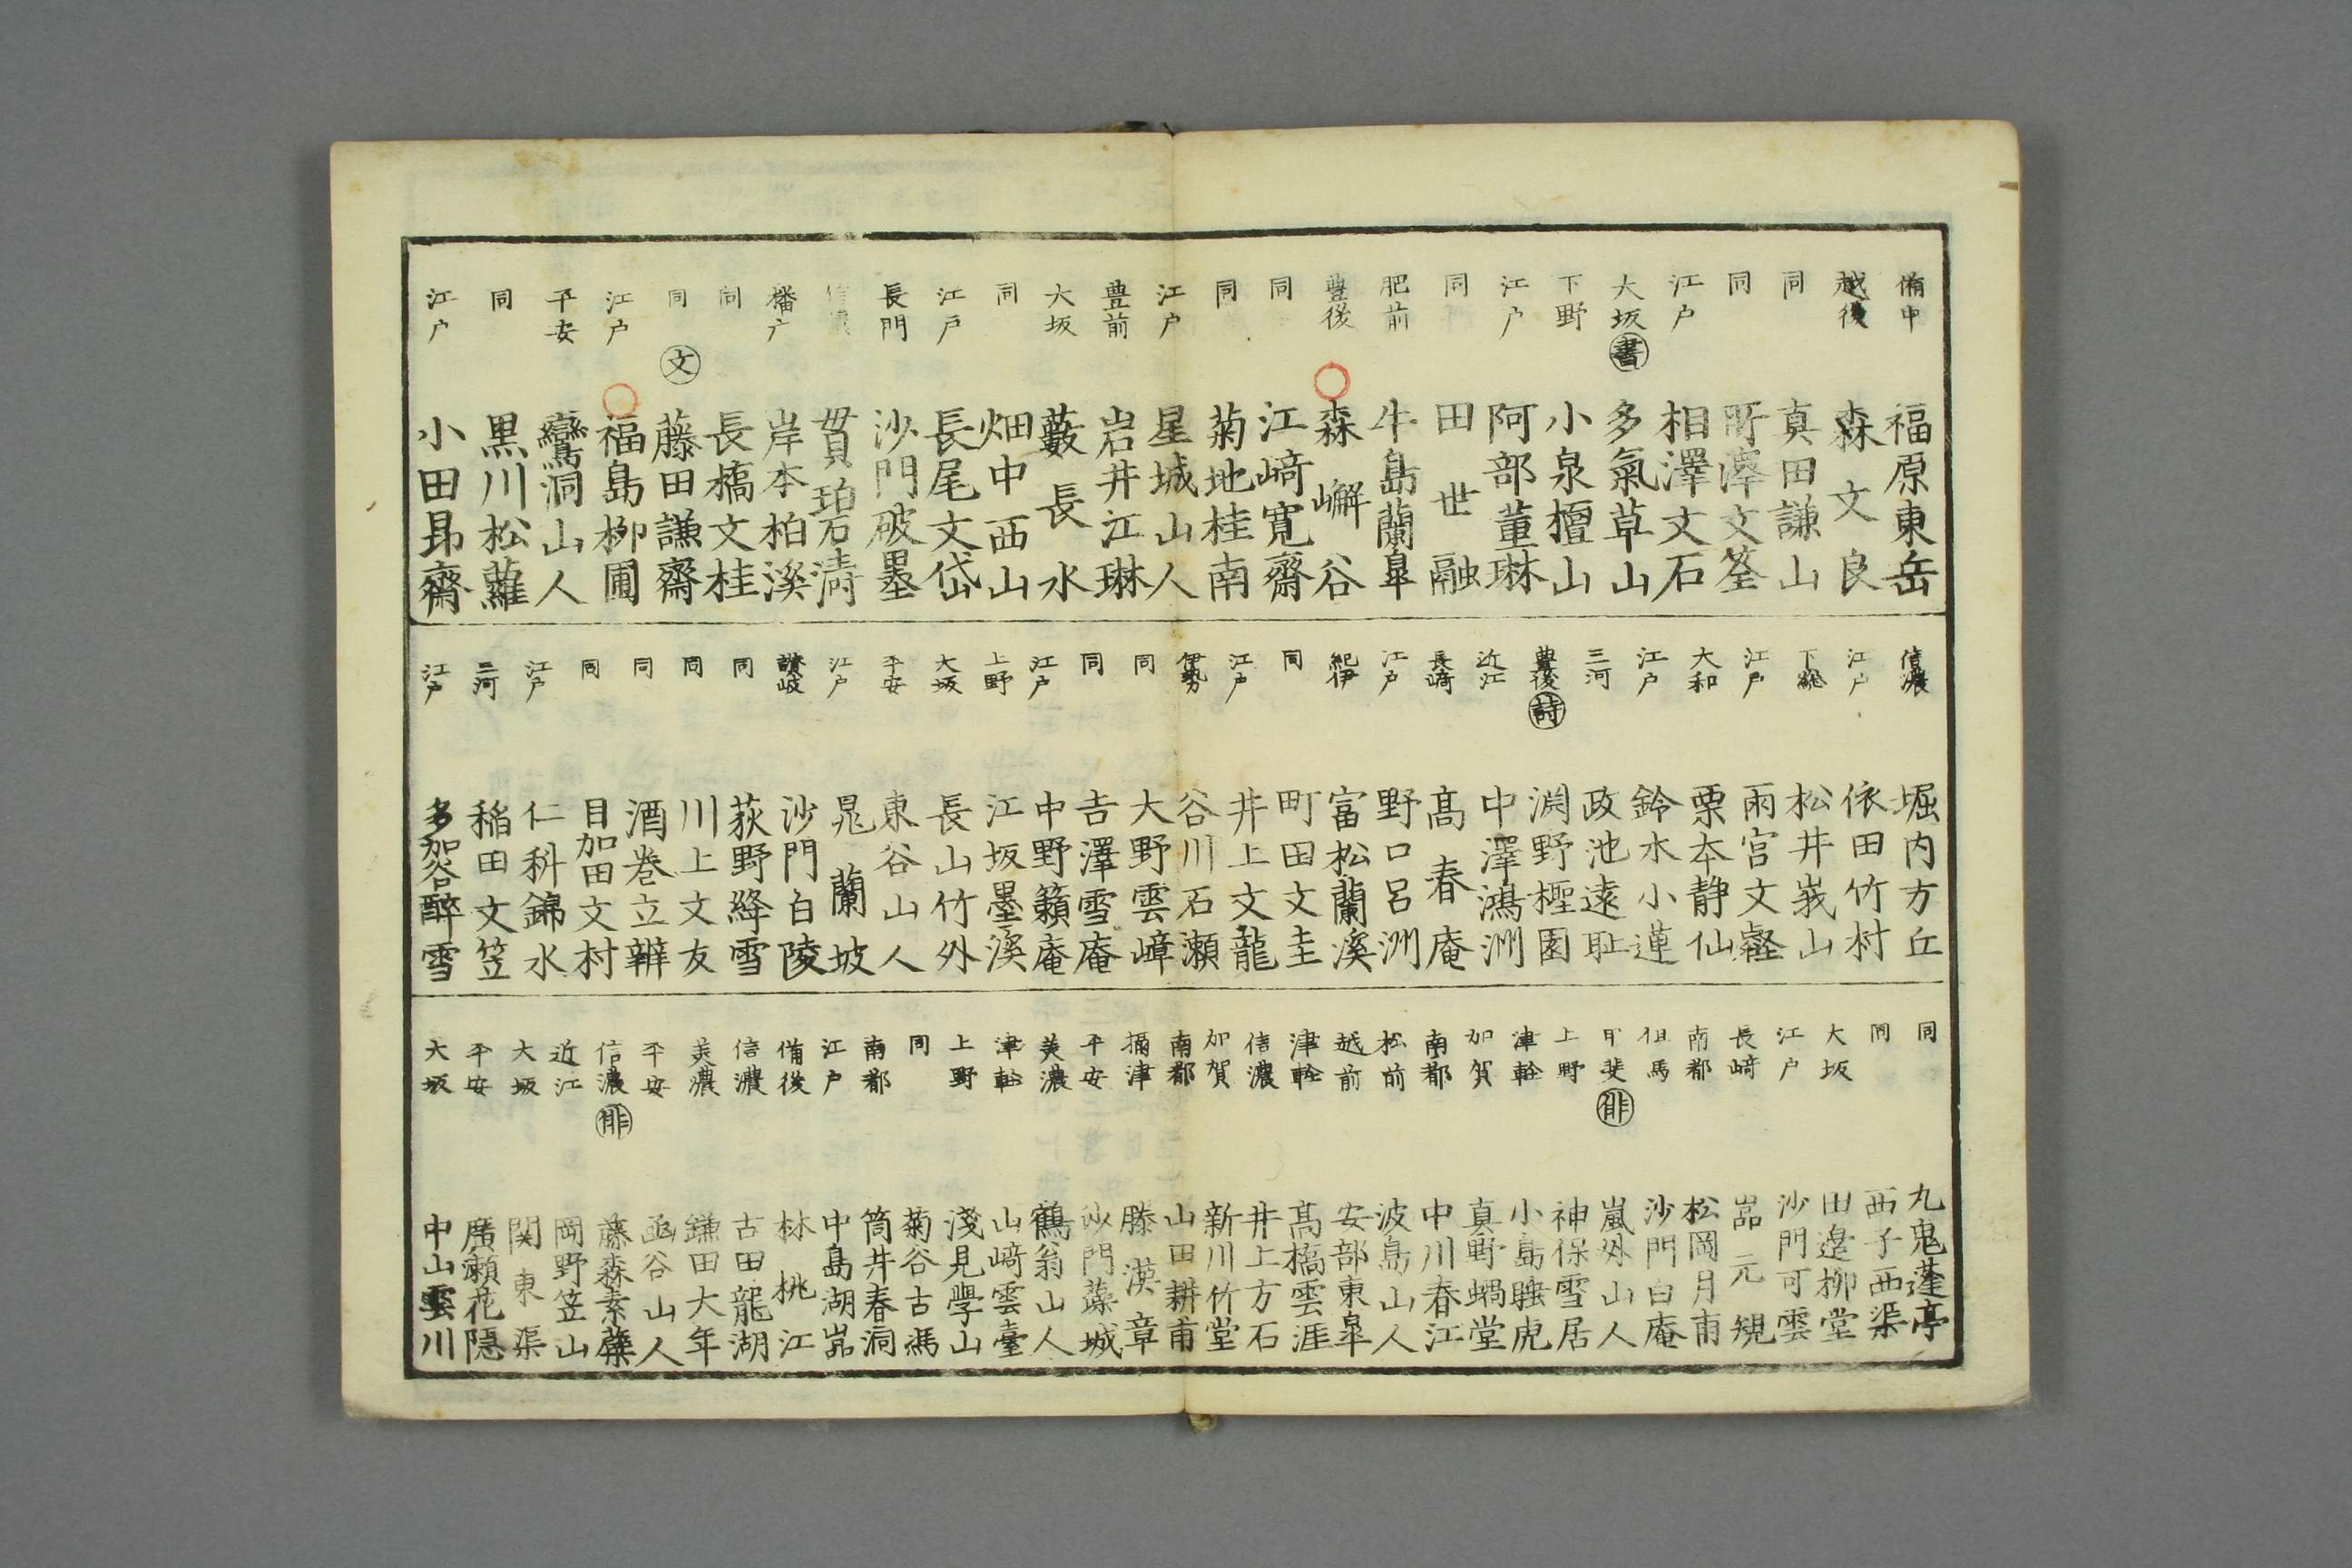 備中 福原東岳
越後 森文良
同 真田謙山
同 町澤文筌
江戸 相澤文石
大坂 書 多氣草山
下野 小泉檀山
江戸 阿部董琳
同 田世融
肥前 牛島蘭皐
豊後 森嶰谷
同 江﨑寛齋
同 菊地桂南
江戸 星城山人
豊前 岩井江琳
大坂 藪長水
同 畑中西山
江戸 長尾文岱
長門 沙門破墨
信濃 貫珀石濤
播广 岸本柏溪
同 長橋文桂
同 文 藤田謙齋
江戸 福島柳圃
平安 鸞洞山人
同 黒川松蘿
江戸 小田昻齋
信濃 堀内方丘
江戸 依田竹村
下総 松井峩山
江戸 雨宮文壑
大和 栗本静仙
江戸 鈴木小蓮
三河 政池遠耻
豊後 詩 渕野樫園
近江 中澤鴻洲
長﨑 髙春庵
江戸 野口呂洲
紀伊 富松蘭溪
同 町田文圭
江戸 井上文龍
伊勢 谷川石瀬
同 大野雲嶂
同 吉澤雪庵
江戸 中野籟庵
上野 江坂墨溪
大坂 長山竹外
平安 東谷山人
江戸 晁蘭坡
讃岐 沙門白陵
同 荻野絳雪
同 川上文友
同 酒巻立辧
同 目加田文村
江戸 仁科錦水
三河 稲田文笠
江戸 多加谷醉雪
同 九鬼蓬亭
同 西子西渠
大坂 田邉柳堂
江戸 沙門可雲
長﨑 嵓元䂓
南都 松岡月甫
但馬 沙門白庵
甲斐 俳 嵐外山人
上野 神保雪居
津軽 小島暁虎
加賀 真野蝸堂
南都 中川春江
松前 波島山人
越前 安部東皐
津軽 髙橋雲涯
信濃 井上方石
加賀 新川竹堂
南都 山田耕甫
攝津 滕漠章
平安 沙門藻城
美濃 鶴翁山人
津軽 山﨑雲臺
上野 淺見學山
同 菊谷古馮
南都 筒井春洞
江戸 中島湖嵓
備後 林桃江
信濃 古田龍湖
美濃 鎌田大年
平安 凾谷山人
信濃 俳 藤森素蘗
近江 岡野笠山
大坂 関東渠
平安 廣瀬花隠
大坂 中山雲川